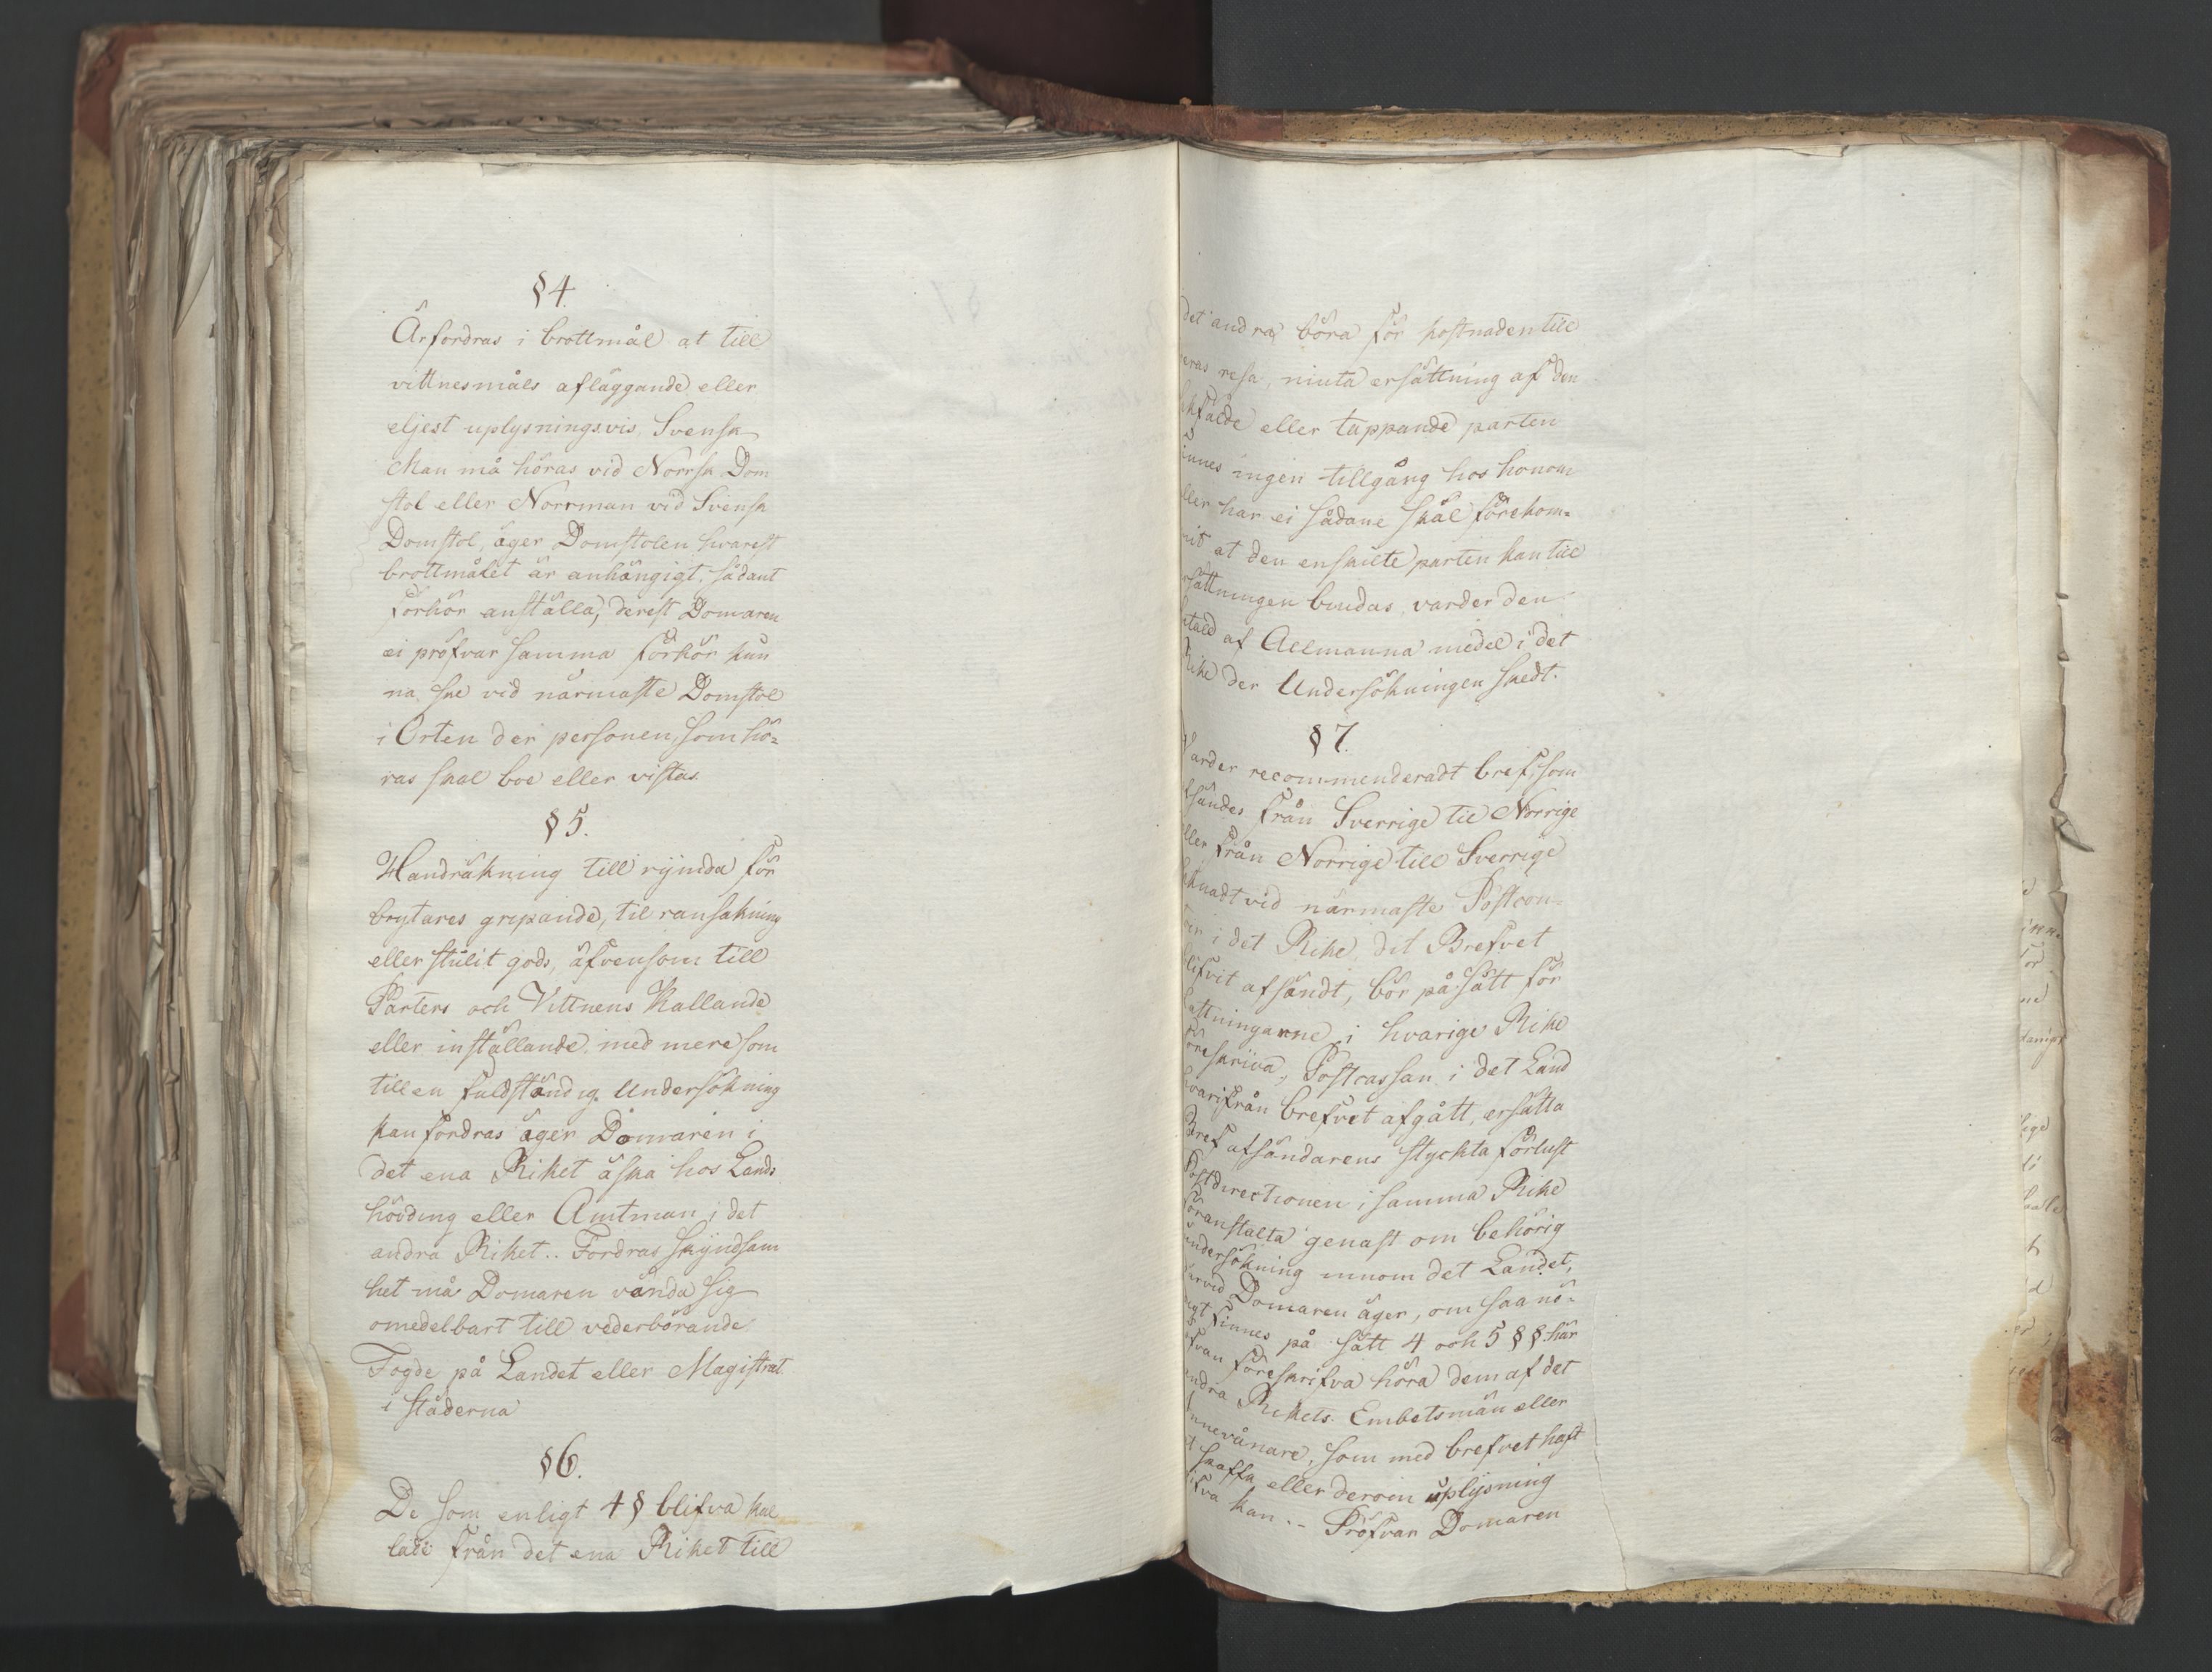 § 4.
Ärfordras i brottmål at till
vittnesmåls afläggande eller
eljest uplysningsvis, Svensk
Man må höras vid Norrsk Dom
stol eller Norrman vid Svensk
Domstol, äger Domstolen hvarest
brottmålet är anhängigt, sådant
förhör anställa, derest Domaren
ei pröfvar samma förhör kun
na ske vid närmaste Domstol
i Orten der personen, som hö-
ras skal boe eller vistas.
§ 5.
Handräkning till rymda för
brytares gripande, til ransakning
eller stulit gods, äfvensom till
Parters och Vittnens Kallande
eller inställande med mere som
till en fuldständig Undersökning
kan fordras äger Domaren i
det ena Riket äska hos Lands
hövding eller Amtman i det
andra Riket.. Fordras skyndsam
het må Domaren vända sig
omedelbart till vederbörande
Fogde på Landet eller Magistrat
i städerna
§ 6.
De som enligt 4 § blifva kal
lade från det ena Riket till
det andra böra för kostnaden till
eras resa, niuta ersättning af den
kfälde eller tappande parten
innes ingen tillgång hos honom
ller har ei sådane skäl förekom-
mit at den enskilte parten kan till
rsättningen bindas, varder den
etald af Allmanna medel i det
Rike der Undersökningen skedt.
§ 7.
Varder recommenderadt bref, som
fsändes från Sverrige til Norrige
ller från Norrige till Sverrige
aknadt vid närmaste Postcon-
oir i det Rike, dit Brefvet
lifvit afsändt, bör på sätt för
attningarne i hvarige Rike
öreskriva, Postcassan i det Land
hvarifrån brefvet afgått, ersätta
Bref afsändarens styckta förlust
Postdirectionen i samma Rike
föranstalta genast om behörig
undersökning innom det Landet,
ervid Domaren äger, om saa nö-
igt finnes på sätt 4 och 5 §§ här
ofvan föreskrifva höra dem af det
andra Rikets Embetsmän eller
Innevånare, som med brefvet haft
t skaffa eller derom uplysning
ifva kan.. Pröfvar Domaren